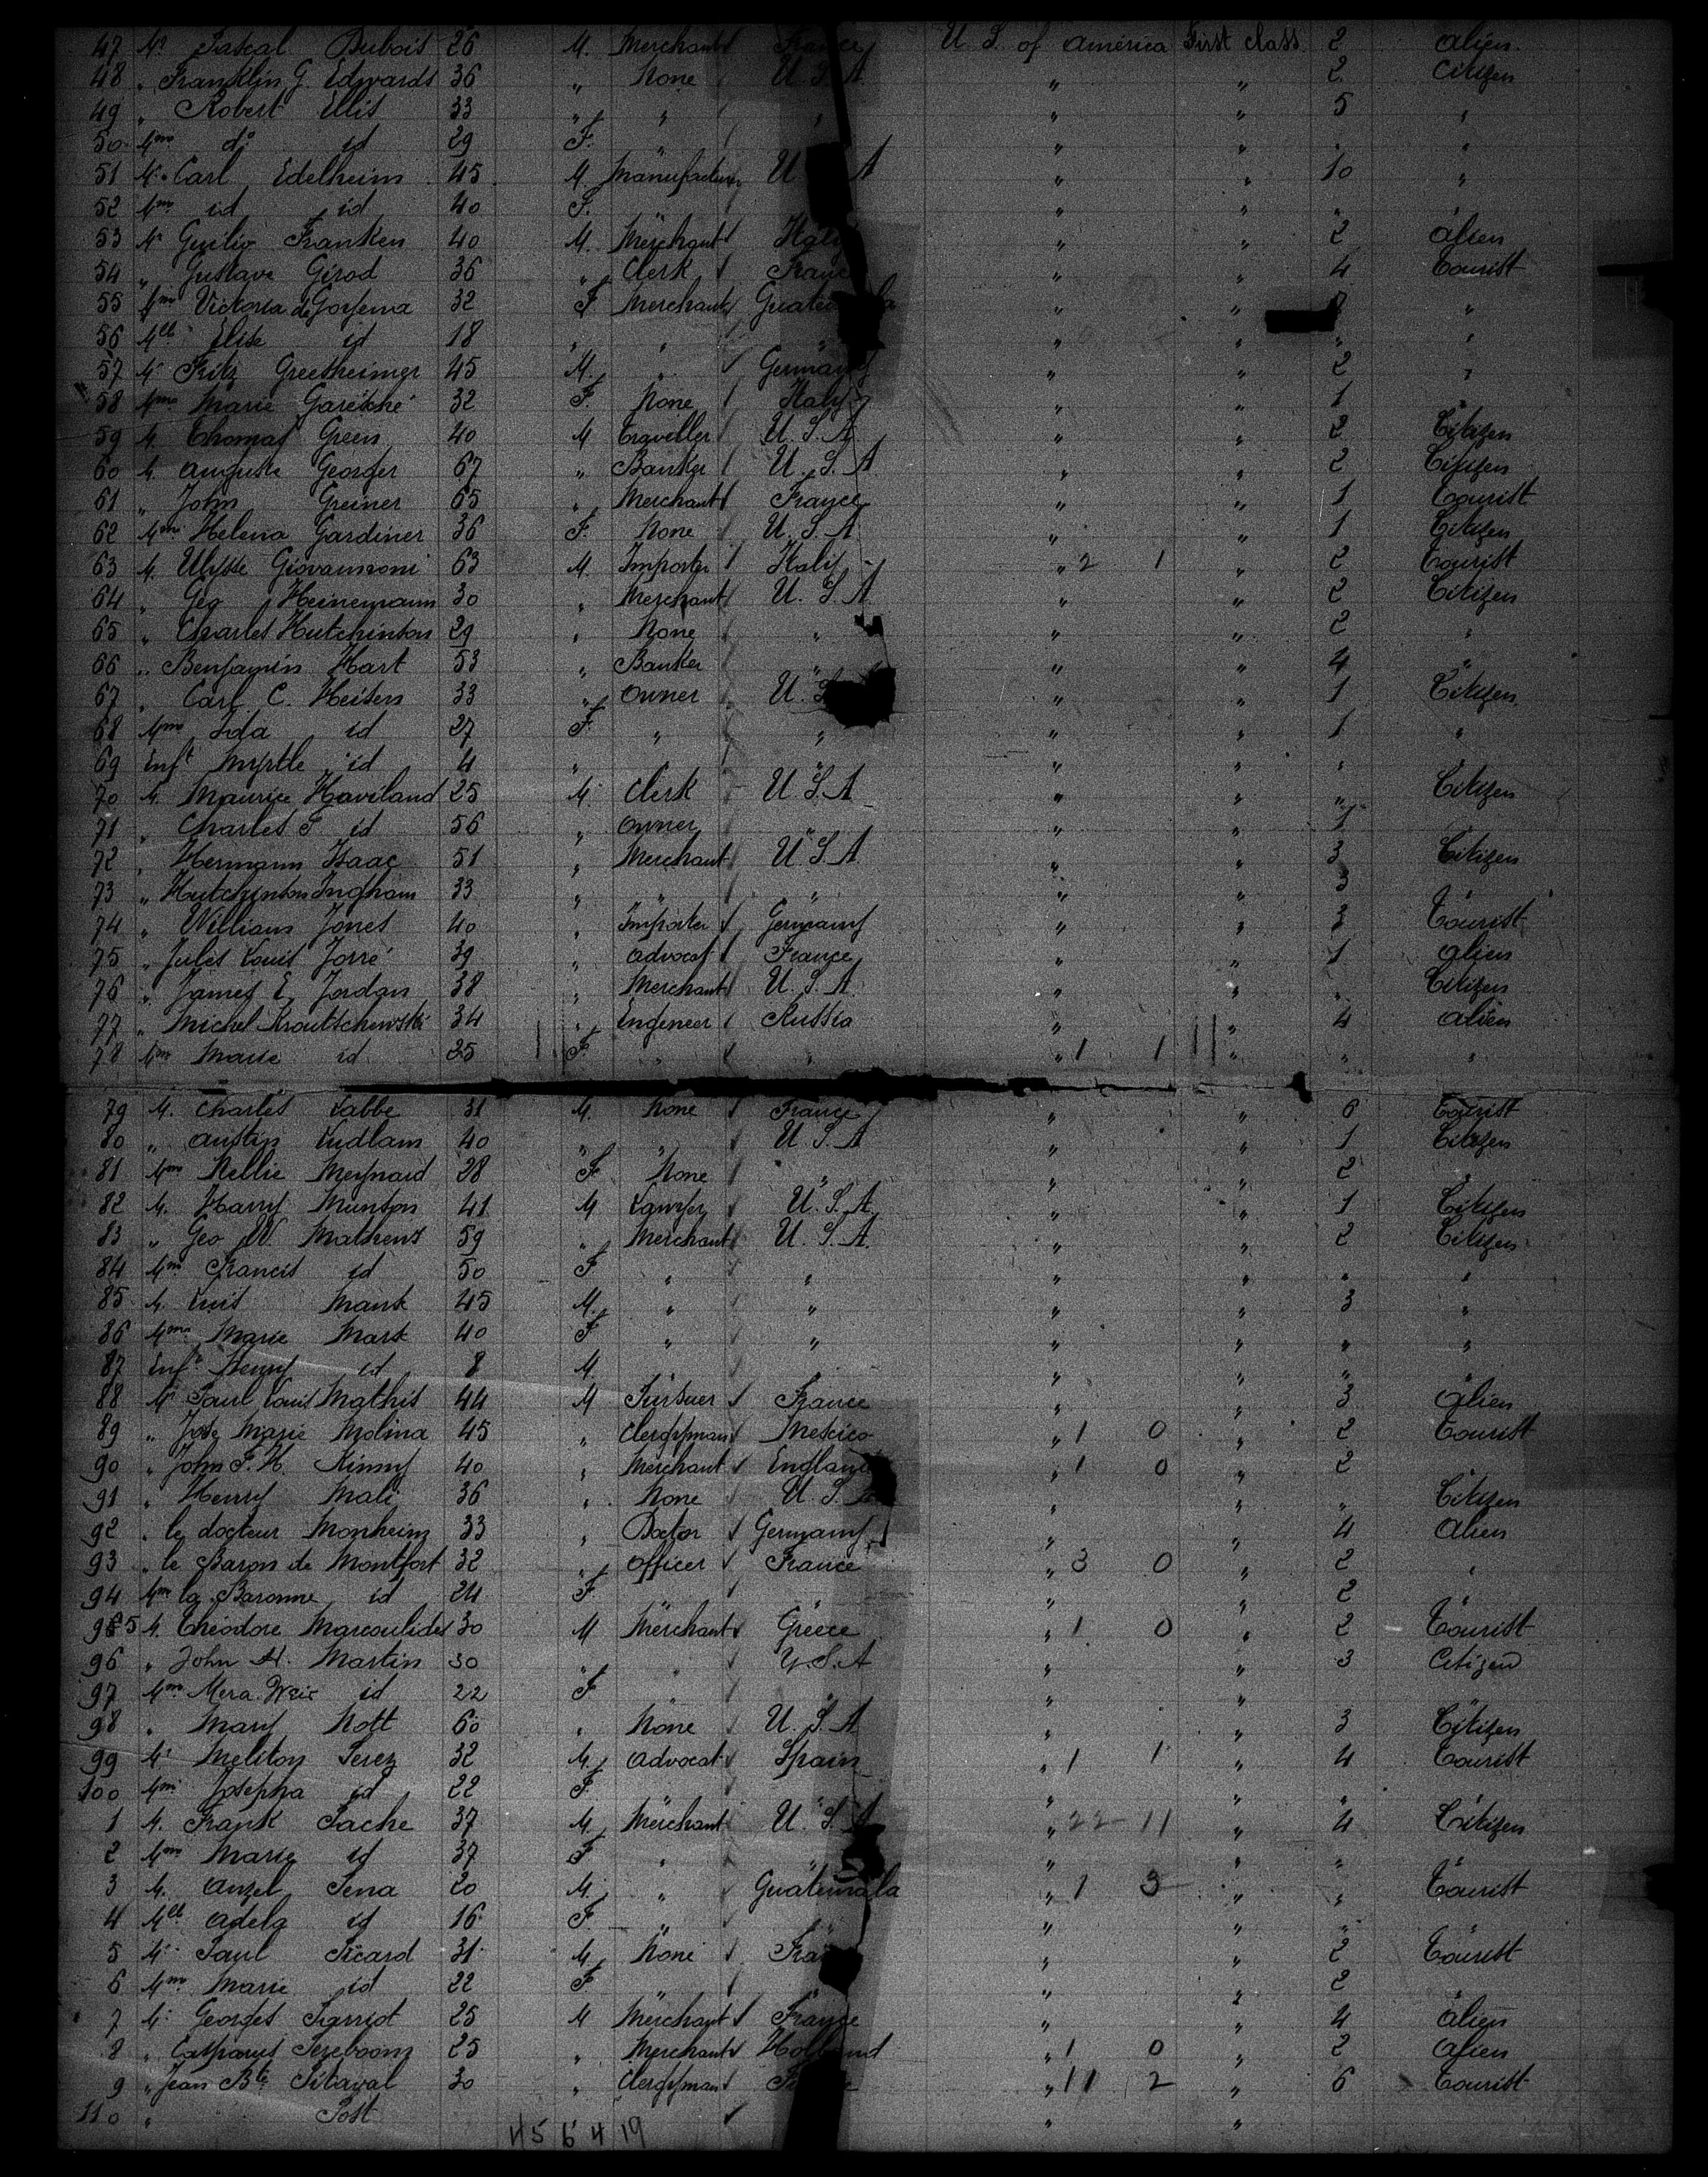 47 Mr Pascal Dubois 26 M. Merchant France U. S. of america First class 2 alien.
48 „ Franklin G. Edwards 36 „ None U. S. A „ „ 2 Citizen
49 „ Robert Ellis 33 „ „ „ „ „ 5 „
50 Mme do id 29 F. „ „ „ „ „
51 Mr Carl Edelheim 45 M. Manufacturer U. A „ „ 10 „
52 Mme id id 40 F. „ „ „ „
53 Mr Guilio Franken 40 M. Merchant Italy „ „ 2 alien
54 „ Gustave Girod 36 „ Clerk France „ „ 4 Tourist
55 Mme Victoria de 32 F Merchant Guatemala „ „ „
56 Mlle Elise id 18 „ „ „ „ „ „ „
57 Mr Fritz Greetheimer 45 M. „ Germany „ „ 2 „
58 Mme Marie Garesché 32 F. None Italy „ „ 1 „
59 M. Thomas Green 40 M Traveller U. S. A „ „ 2 Citizen
60 M. auguste Georger 67 „ Banker U. S. A „ „ 2 Citizen
61 „ John Greiner 65 „ Merchant France „ „ 1 Tourist
62 Mme Helena Gardiner 36 F. None U. S. A „ „ 1 Citizen
63 M. Ulysse Giovannoni 63 M. Importer Italy „ 2 1 „ 2 Tourist
64 „ Geo Heinemann 30 „ Merchant U. S. A „ „ 2 Citizen
65 „ Charles Hutchinson 29 „ None „ „ „ 2 „
66 „ Benjamin Hart 53 „ Banker „ „ „ 4 „
67 „ Carl C. Heisen 33 „ owner U. S „ „ 1 Citizen
68 Mme Ida id 27 F. „ „ „ „ 1 „
69 Enft Myrtle id 4 „ „ „ „ „
70 M. Maurice Haviland 25 M. Clerk U. S. A „ „ „ Citizen
71 „ Charles F id 56 „ owner „ „ „ 1
72 „ Hermann Isaac 51 „ Merchant U. S. A „ „ 3 Citizen
73 „ Hutchinson Ingham 33 „ „ „ „ „ 3 „
74 „ William Jones 40 „ Importer Germany „ „ 3 Tourist
75 „ Jules Louis Jorré 39 „ advocat France „ „ 1 alien
76 „ James E. Jordan 38 „ Merchant U. S. A „ „ „ Citizen
77 „ Michel Kroutschewski 34 „ Engeneer Russia „ „ 4 alien
78 Mme Marie id 25 F. „ „ „ 1 1 „ „ „
79 M. Charles Labbe 31 M. None France „ „ 6 Tourist
80 „ austin Ludlam 40 „ „ U. S. A „ „ 1 Citizen
81 Mme Nellie Meynard 28 F. None „ „ „ 2 „
82 M. Harry Munson 41 M Lawyer U. S. A „ „ 1 Citizen
83 „ Geo W. Mathews 59 „ Merchant U. S. A. „ „ 2 Citizen
84 Mme Francis id 50 F „ „ „ „ „ „
85 M. Luis Mark 45 M. „ „ „ „ 3 „
86 Mme Marie Mark 40 F „ „ „ „ „ „
87 Enft Henry id 8 M. „ „ „ „
88 Mr Paul Louis Mathis 44 M Pursuer France „ „ 3 alien
89 „ Jose Marie Molina 45 „ Clergyman Mexico „ 1 0 „ 2 Tourist
90 „ John P. H. Kinny 40 „ Merchant England „ 1 0 „ 2 „
91 „ Henry Mali 36 „ None U. S. A „ „ „ Citizen
92 „ le docteur Monheim 33 „ Doctor Germany „ „ 4 Alien
93 „ le Baron de Montfort 32 „ officer France „ 3 0 „ 2 „
94 Mme la Baronne id 24 F. „ „ „ 2 „
95 M. Théodore Marcoulides 30 M Merchant Greece „ 1 0 „ 2 Tourist
96 „ John H. Martin 30 „ „ U. S. A „ „ 3 Citizen
97 Mme Mera Weir id 22 F „ „ „
98 „ Mary Nott 60 „ None U. S. A „ „ 3 Citizen
99 Mr Meliton Perez 32 M. advocat Spain „ 1 1 „ 4 Tourist
100 Mme Josepha id 22 F. „ „ „ „
1 M. Frank Pache 37 M. Merchant U. S. A „ 22 11 „ 4 Citizen
2 Mme Marie id 37 F „ „ „ „ „ „
3 M. Angel Pena 20 M. „ Guatemala „ 1 3 „ „ Tourist
4 Mlle Adela id 16 F. „ „ „ „ „ „
5 Mr Paul Picard 31 M. None France „ „ 2 Tourist
6 Mme Marie id 22 F. „ „ 2 „
7 Mr Georges Pierriot 25 M Merchant France „ „ 4 Alien
8 „ Casparus Pereboom 25 „ Merchant Holland „ 1 0 „ 2 Alien
9 „ Jean Bte Pitaval 30 „ Clergyman „ 11 2 „ 6 Tourist
110 „ Post „ „
45 6 4 19